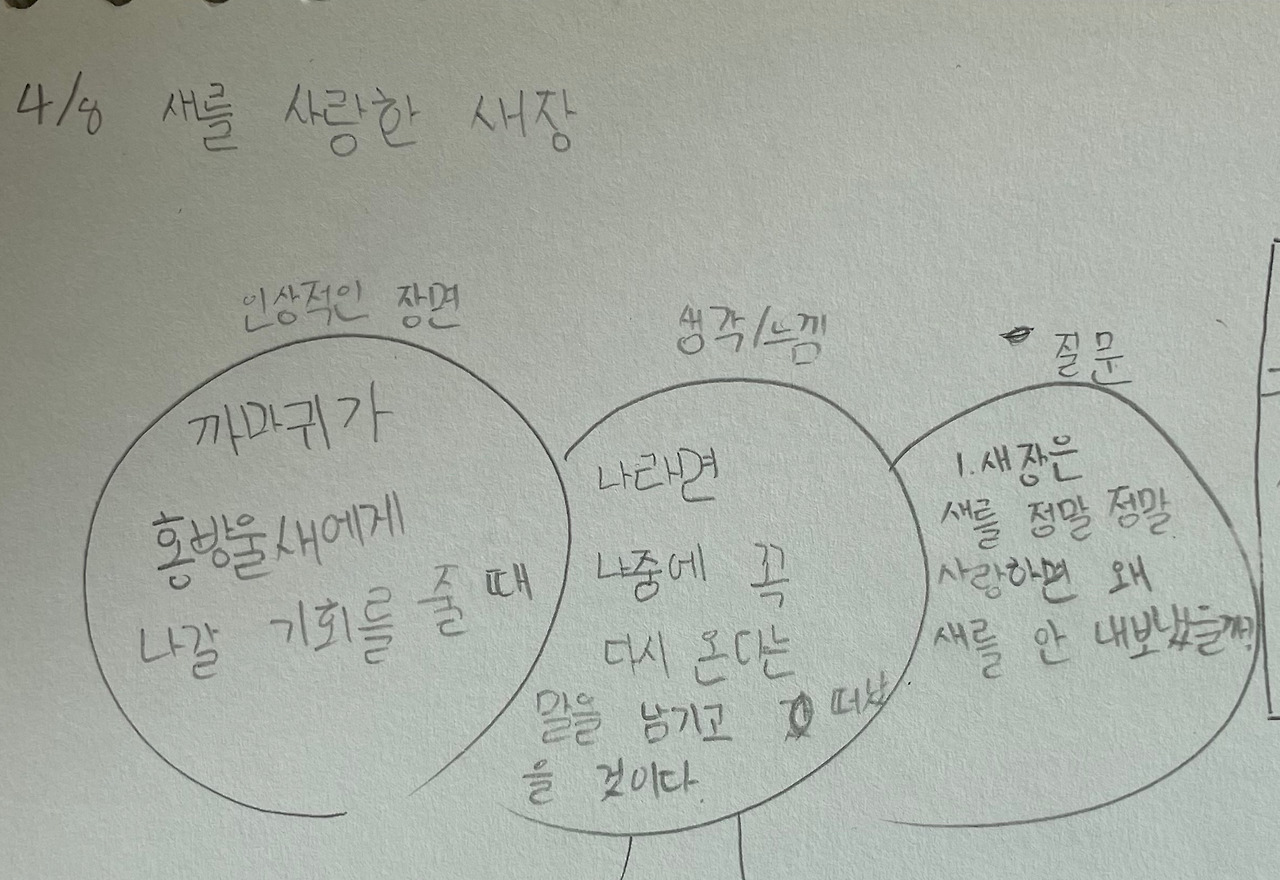 4/8 새를 사랑한 새장
인상적인 장면
까마귀가
홍방울새에게
나갈 기회를 줄 때
생각/느낌
나라면
나중에 꼭
다시 온다는
말을 남기고 떠났
을 것이다.
질문
1. 새장은
새를 정말 정말
사랑하면 왜
새를 안 내보냈을까?